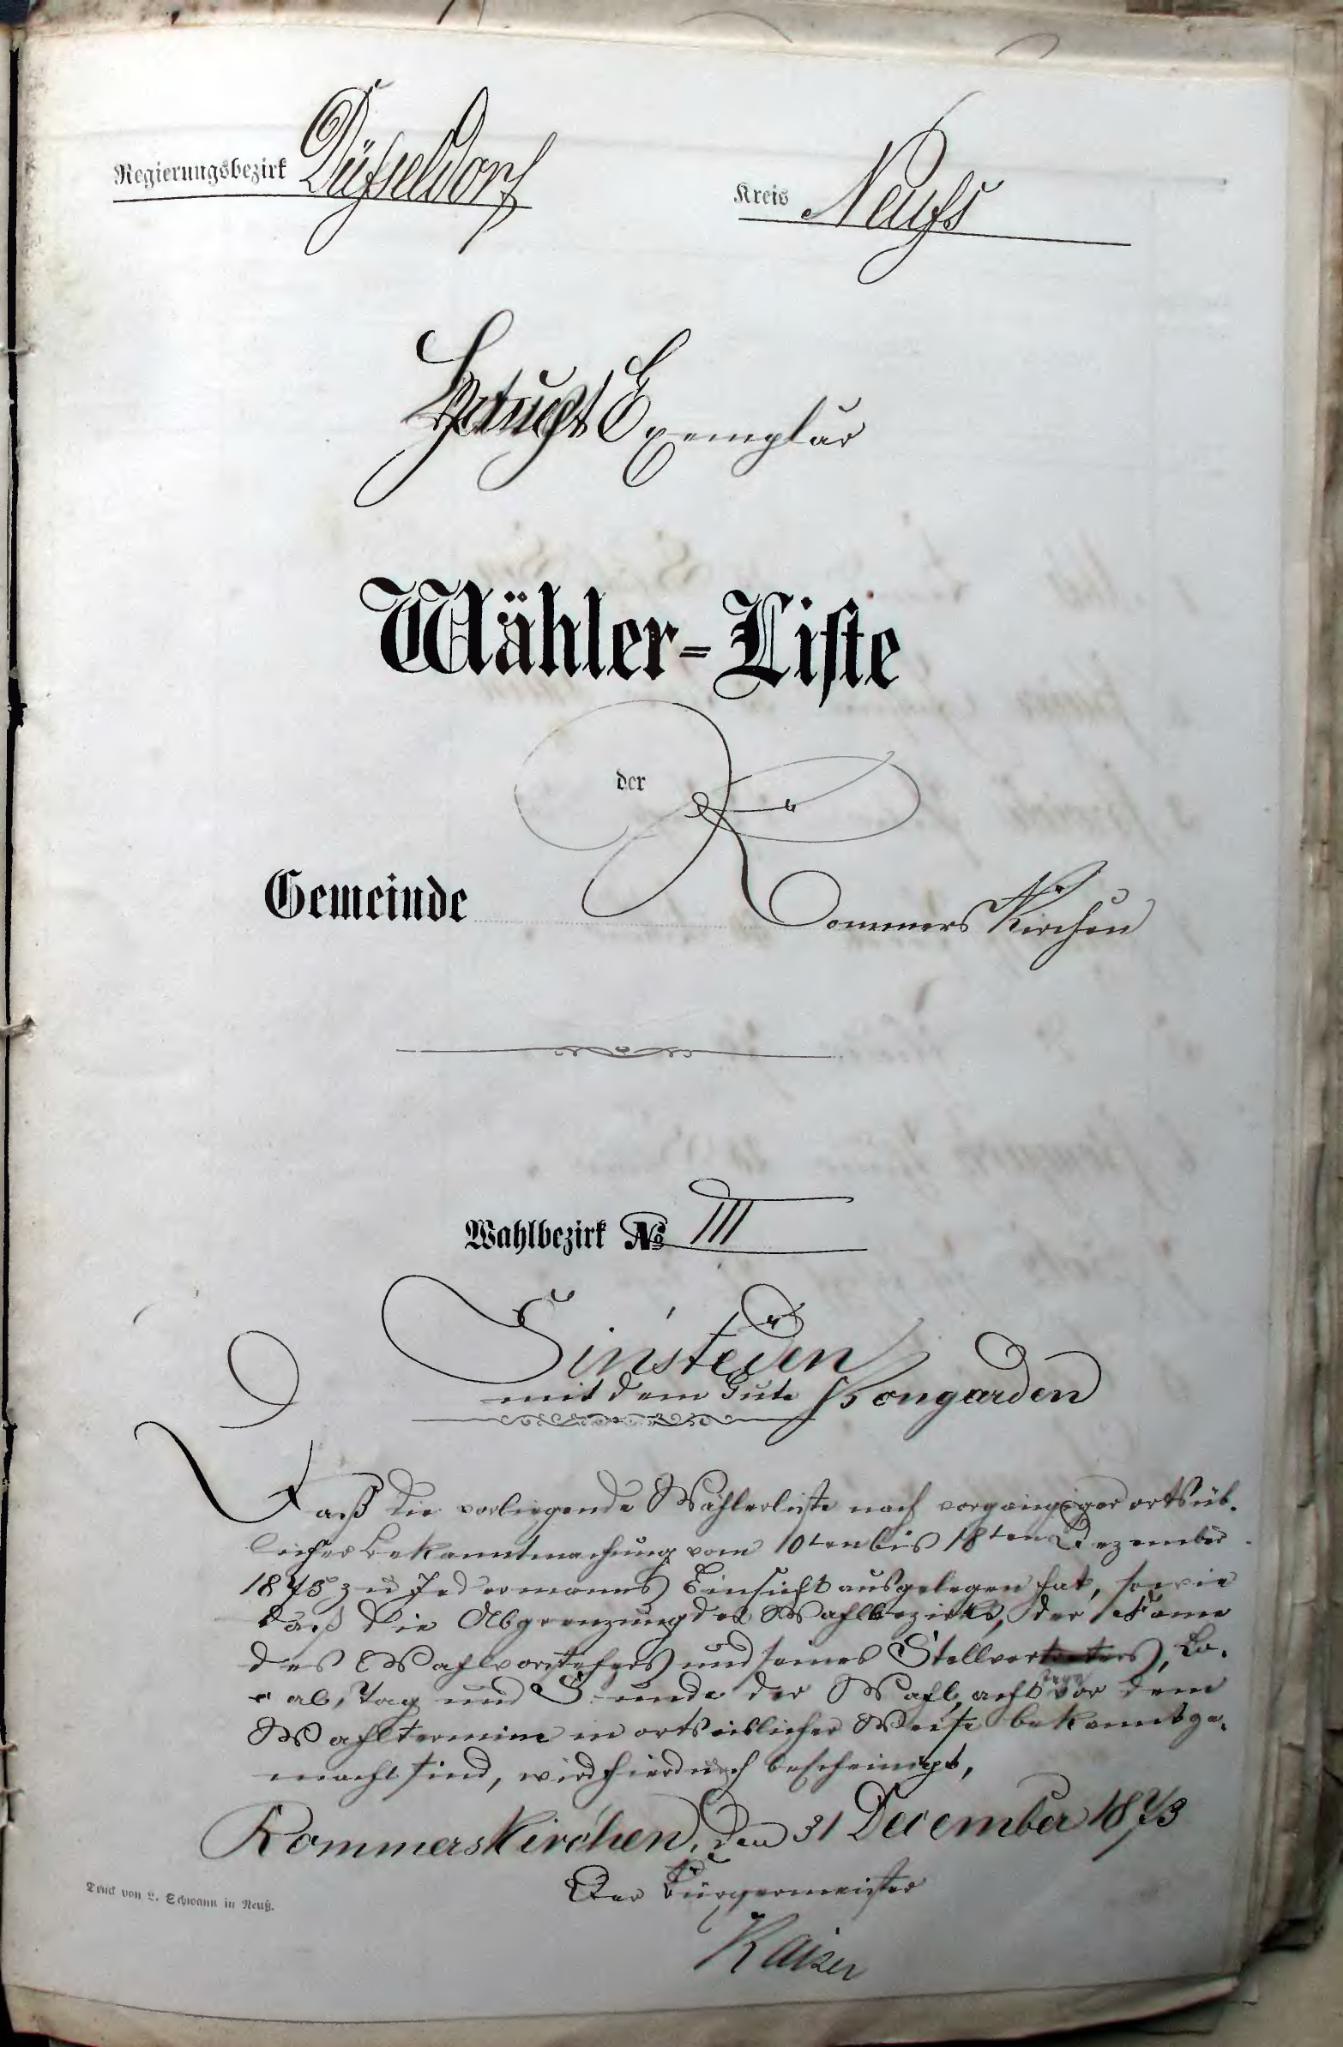 Regierungsbezirk Düsseldorf Kreis Neuß
Haupt Exemplar
Wähler-Liste
der
Gemeinde RommersKirchen
Wahlbezirk No III
Sinsteden
mit dem Gute Kongarden
Daß die vorliegende Wählerliste nach vorgängiger ortsüb-
licher Bekanntmachung vom 10ten bis 18ten Dezember
1873 zu Jedermanns Einsicht ausgelegen hat, sowie
daß die Abgrenzung des Wahlbezirks, der Name
des Wahlvorstehers und seines Stellvertreters, Lo-
cal, Tag und Stunde der Wahl acht Tage vor dem
Wahltermine in ortsüblicher Weise bekanntge-
macht sind, wird hierdurch bescheinigt,
Rommerskirchen, den 31 December 1873
Der Bürgermeister
Kaiser
Druck von L. Schwann in Neuß.